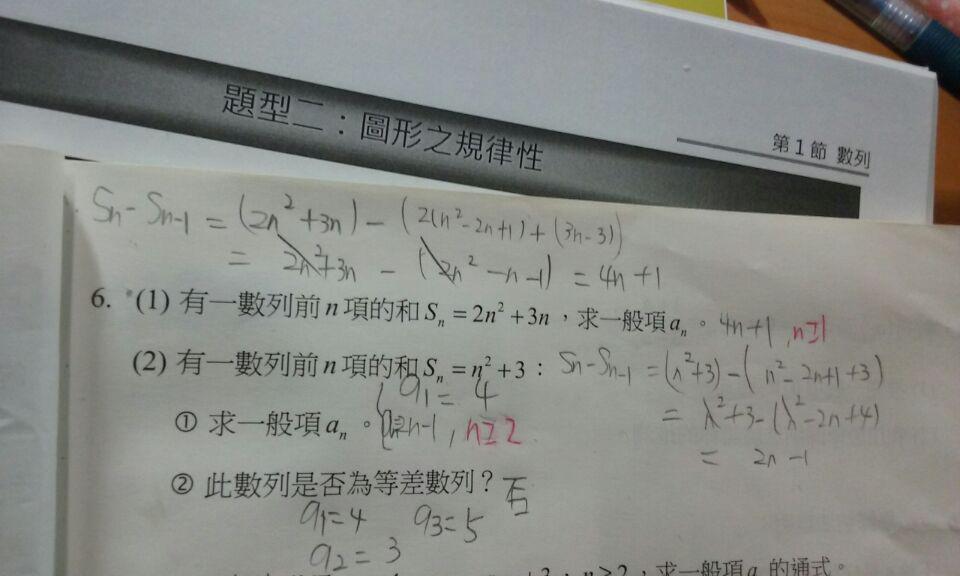 題型二：圖形之規律性
第1節 數列
Sn - Sn-1 = (2n² + 3n) - (2(n² - 2n + 1) + (3n - 3))
= 2n² + 3n - (2n² - n - 1) = 4n + 1
6. (1) 有一數列前 n 項的和 Sn = 2n² + 3n，求一般項 an。 4n+1, n≥1
(2) 有一數列前 n 項的和 Sn = n² + 3： Sn - Sn-1 = (n² + 3) - (n² - 2n + 1 + 3)
a1 = 4
= n² + 3 - (n² - 2n + 4)
① 求一般項 an。 2n-1, n≥2
= 2n - 1
② 此數列是否為等差數列？ 否
a1 = 4 a3 = 5
a2 = 3
+3，n≥2，求一般項 an 的通式。